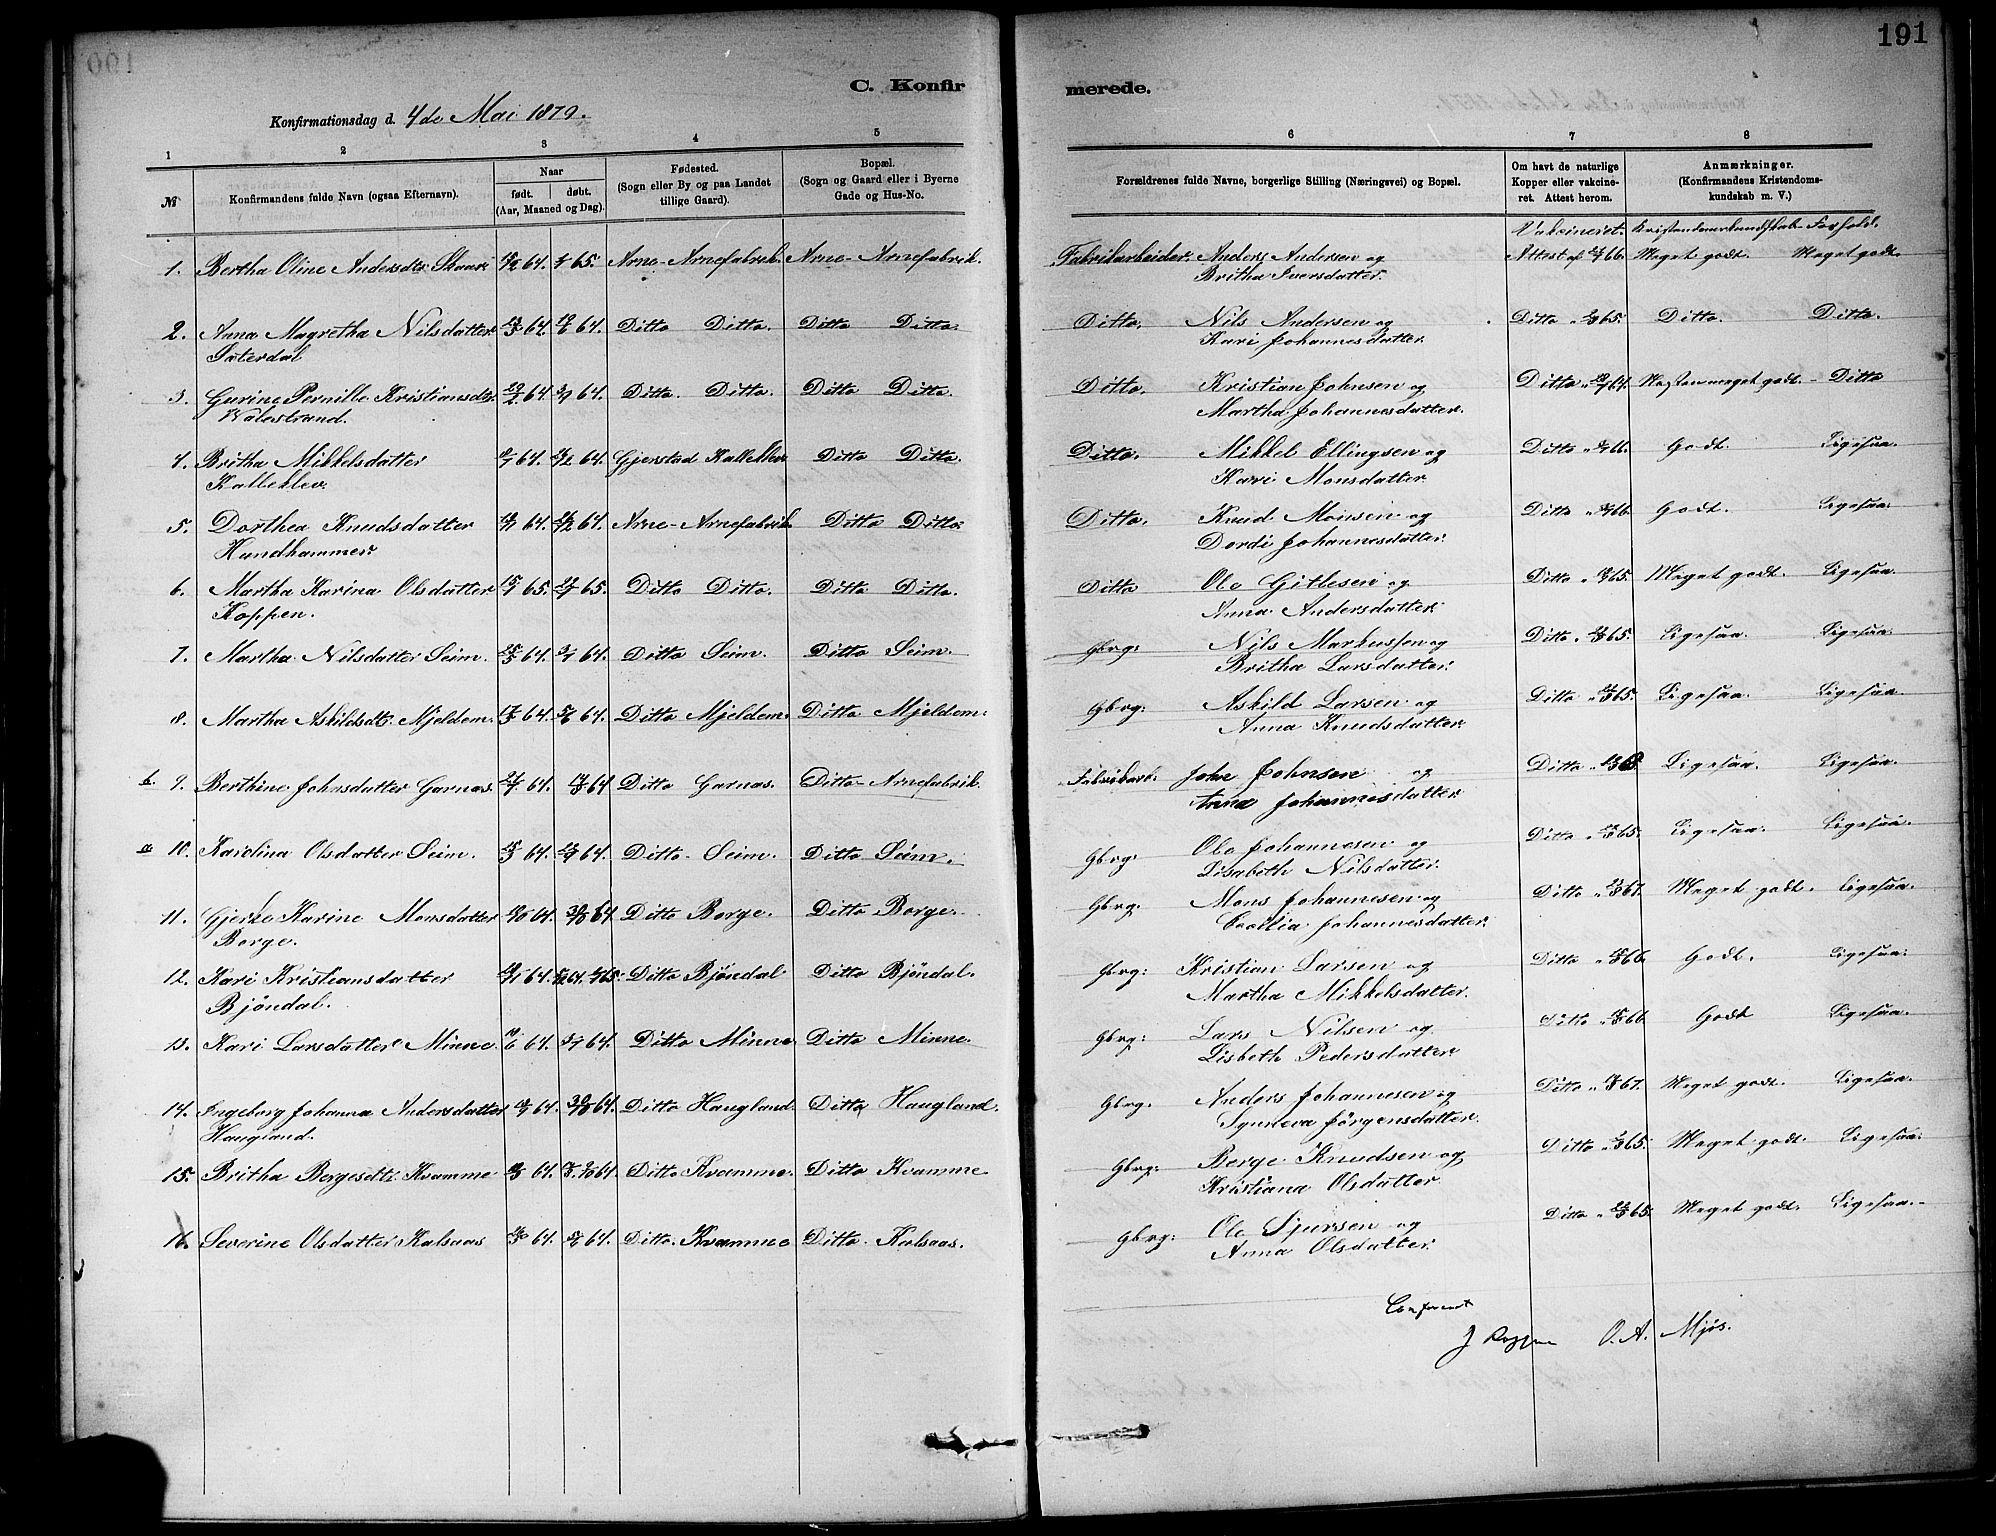 191
C. Konfir
merede.
Konfirmationsdag d. 4de Mai 1879.
1 2 3 4 5 6 7 8
№
Konfirmandens fulde Navn (ogsaa Efternavn).
Naar
født. døbt.
(Aar, Maaned og Dag).
Fødested.
(Sogn eller By og paa Landet
tillige Gaard).
Bopæl.
(Sogn og Gaard eller i Byerne
Gade og Hus-No.
Forældrenes fulde Navne, borgerlige Stilling (Næringsvei) og Bopæl.
Om havt de naturlige
Kopper eller vakcine-
ret. Attest herom.
Anmærkninger.
(Konfirmandens Kristendoms-
kundskab m. V.)
Vakcineret. Kristendomskundskab Forhold.
1. Bertha Oline Andersdtr Skaar 64. 65. Arne - Arnefabrik. Arne - Arnefabrik. Fabrikarbeider Anders Andersen og Attest af 66. Meget godt. Meget godt.
Britha Iversdatter.
2. Anna Magretha Nilsdatter 64. 64. Ditto Ditto. Ditto Ditto. Ditto. Nils Andersen og Ditto 65. Ditto. Ditto.
Kari Johannesdatter
3. Gurine Pernille Kristiansdtr. 64 64. Ditto. Ditto. Ditto Ditto. Ditto. Kristian Johnsen og Ditto 64. Næsten meget godt. - Ditto
Walestrand. Martha Johannesdatter.
4. Britha Mikkelsdatter 64. 64. Gjerstad Kalleklev Ditto Ditto. Ditto. Mikkel Ellingsen og Ditto 66. Godt. Ligesaa
Kalleklev Kari Monsdatter
5. Dorthea Knudsdatter 64. 64. Arne - Arnefabrik Ditto Ditto. Ditto. Knud Monsen og Ditto 66. Godt. Ligesaa.
Hundhammer. Dordi Johannesdatter.
6. Martha Karina Olsdatter 65. 65. Ditto Ditto. Ditto Ditto. Ditto Ole Gitlesen og Ditto 65. Meget godt. Ligesaa.
Koppen. Anna Andersdatter.
7. Martha Nilsdatter Seim. 64. 64. Ditto Seim. Ditto Seim. Gbrg: Nils Markussen og Ditto 65. Ligesaa. Ligesaa.
Britha Larsdatter.
8. Martha Askildsdt. Mjeldem. 64. 64. Ditto Mjeldem. Ditto Mjeldem. Gbrg: Askild Larsen og Ditto 65. Ligesaa. Ligesaa.
Anna Knudsdatter
b. 9. Berthine Johnsdatter Garnæs. 64. 64 Ditto Garnæs. Ditto - Arnefabrik. Fabrikarb: John Johnsen og Ditto Ligesaa. Ligesaa.
Anna Johannesdatter
a 10. Karolina Olsdatter Seim. 64. 64. Ditto - Seim. Ditto Seim. Gbrg: Ole Johannesen og Ditto 65. Ligesaa. Ligesaa.
Lisabeth Nilsdatter.
11. Gjerte Karine Monsdatter 64. 64 Ditto Borge. Ditto Borge. Gbrg: Mons Johannesen og Ditto 67. Meget godt. Ligesaa.
Borge. Cecilia Johannesdatter.
12. Kari Kristiansdatter 64. 64. 65. Ditto Bjöndal Ditto Bjöndal. Gbrg: Kristian Larsen og Ditto 66. Godt. Ligesaa.
Bjöndal. Martha Mikkelsdatter.
13. Kari Larsdatter Minne 64. 64. Ditto Minne Ditto Minne. Gbrg: Lars Nilsen og Ditto 66. Godt Ligesaa.
Lisbeth Pedersdatter
14. Ingeborg Johanna Andersdatter 64. 64. Ditto Haugland. Ditto Haugland. Gbrg. Anders Johannesen og Ditto 67. Meget godt. Ligesaa.
Haugland. Synneva Jörgensdatter.
15. Britha Bergesdt. Kvamme 64. 64. Ditto Kvamme. Ditto Kvamme Gbrg: Berge Knudsen og Ditto 65. Meget godt. Ligesaa.
Kristiana Olsdatter.
16. Severine Olsdatter Kalsaas 64. 64. Ditto. Kvamme Ditto. Kalsaas. Gbrg: Ole Sjursen og Ditto 65. Meget godt. Ligesaa.
Anna Olsdatter.
Confereret
J Koppen O. A. Mjös.